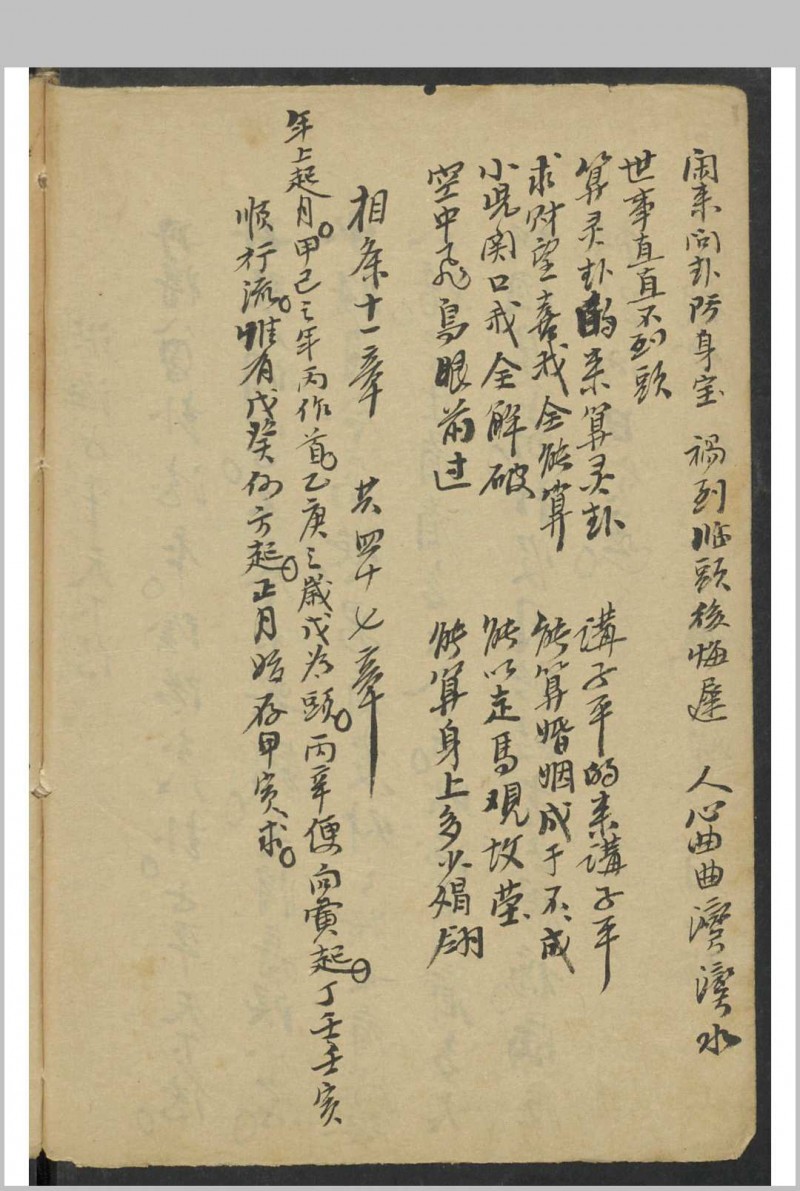 闲来问卦防身宝 祸到临頭後悔遲 人心曲曲湾湾水
世事直直不到頭
算灵卦的来算灵卦 講子平的来講子平
求财望喜我全能算 能算婚姻成于不成
小児関口我全解破 能以走馬观坟莹
空中飞鳥眼前过 能算身上多少
相条十一章 共四十七章
年上起月。甲己之年丙作首。乙庚之歲戊为頭。丙辛便向寅起。丁壬壬寅
順行流。惟有戊癸何方起。正月始存甲寅求。